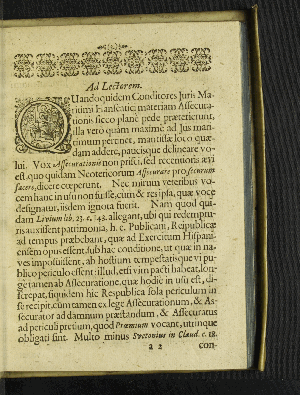 Ad Lectorem.
QUandoquidem Conditores Juris Ma-
ritimi Hanseatici materiam Assecura-
tionis sicco planè pede præterierunt,
illa vero quàm maximè ad Jus mari-
timum pertinet, mantissæ loco quæ-
dam addere, paucisque delineare vo-
lui. Vox Assecurationis non prisci, sed recentioris ævi
est, quo quidam Neotericorum Assecurare pro securum
facere, dicere cœperunt. Nec mirum veteribus vo-
cem hanc in usu non fuisse, cùm & res ipsa, quæ voce
designatur, iisdem ignota fuerit. Nam quod qui-
dam Livium lib. 23. c. 43. allegant, ubi qui redemptu-
ris auxissent patrimonia, h. e. Publicani, Reipublicæ
ad tempus præbebant, quæ ad Exercitus Hispani-
ensem opus essent sub hac conditione, ut quæ in na-
ves imposuissent, ab hostium tempestatisque vi pu-
blico periculo essent: illud, etsi vim pacti habeat, lon-
ge tamen ab Assecuratione, quæ hodie in usu est, di-
screpat, siquidem hic Respublica sola periculum in
se recipit, cum tamen ex lege Assecurationum, & As-
securator ad damnum præstandum, & Assecuratus
ad periculi pretium, quod Præmium vocant, utrinque
obligati sint. Multo minus Suetonius in Claud. c. 18.
a 2 con-